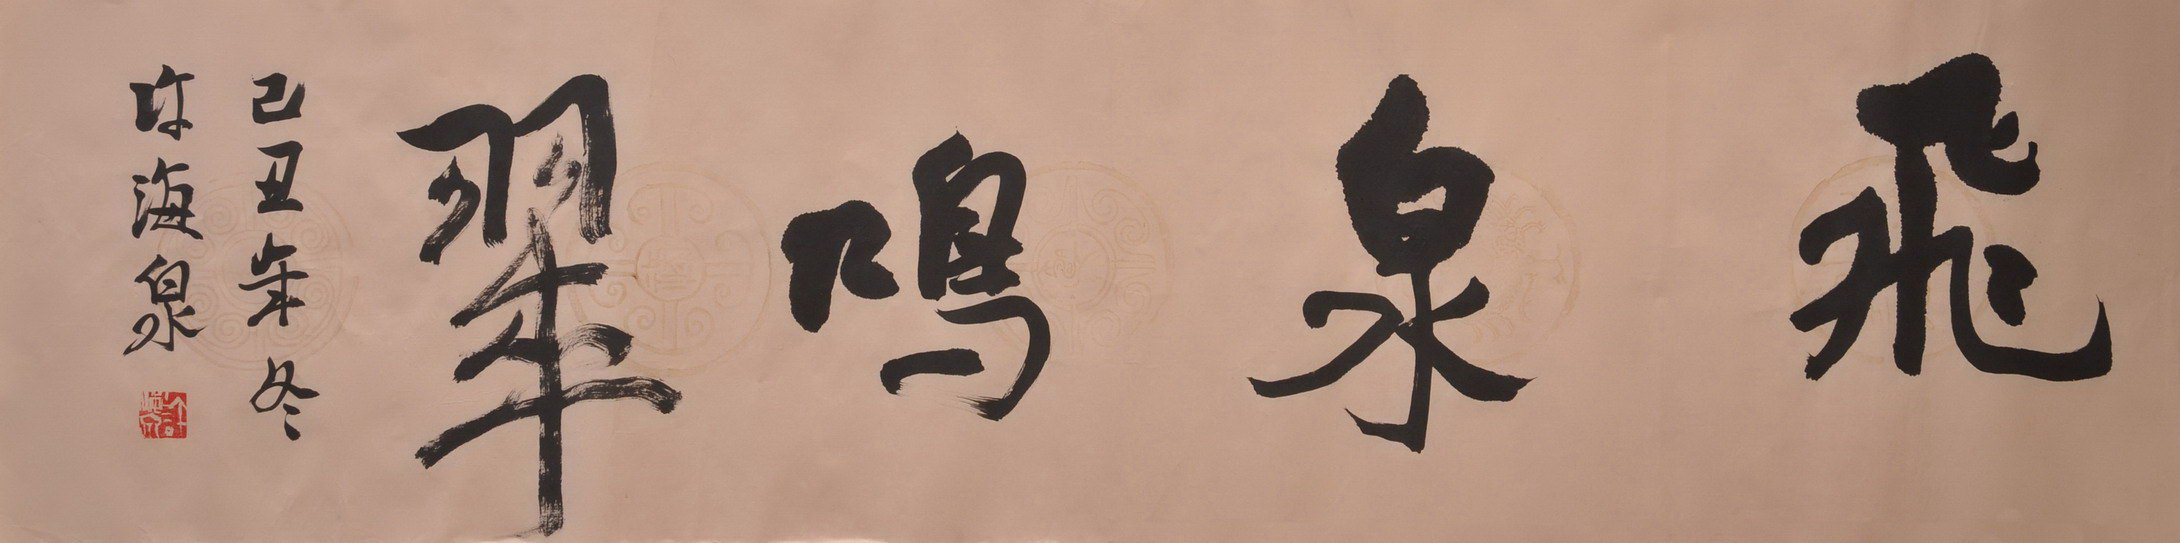 飛泉鳴翠
己丑年冬
许海泉